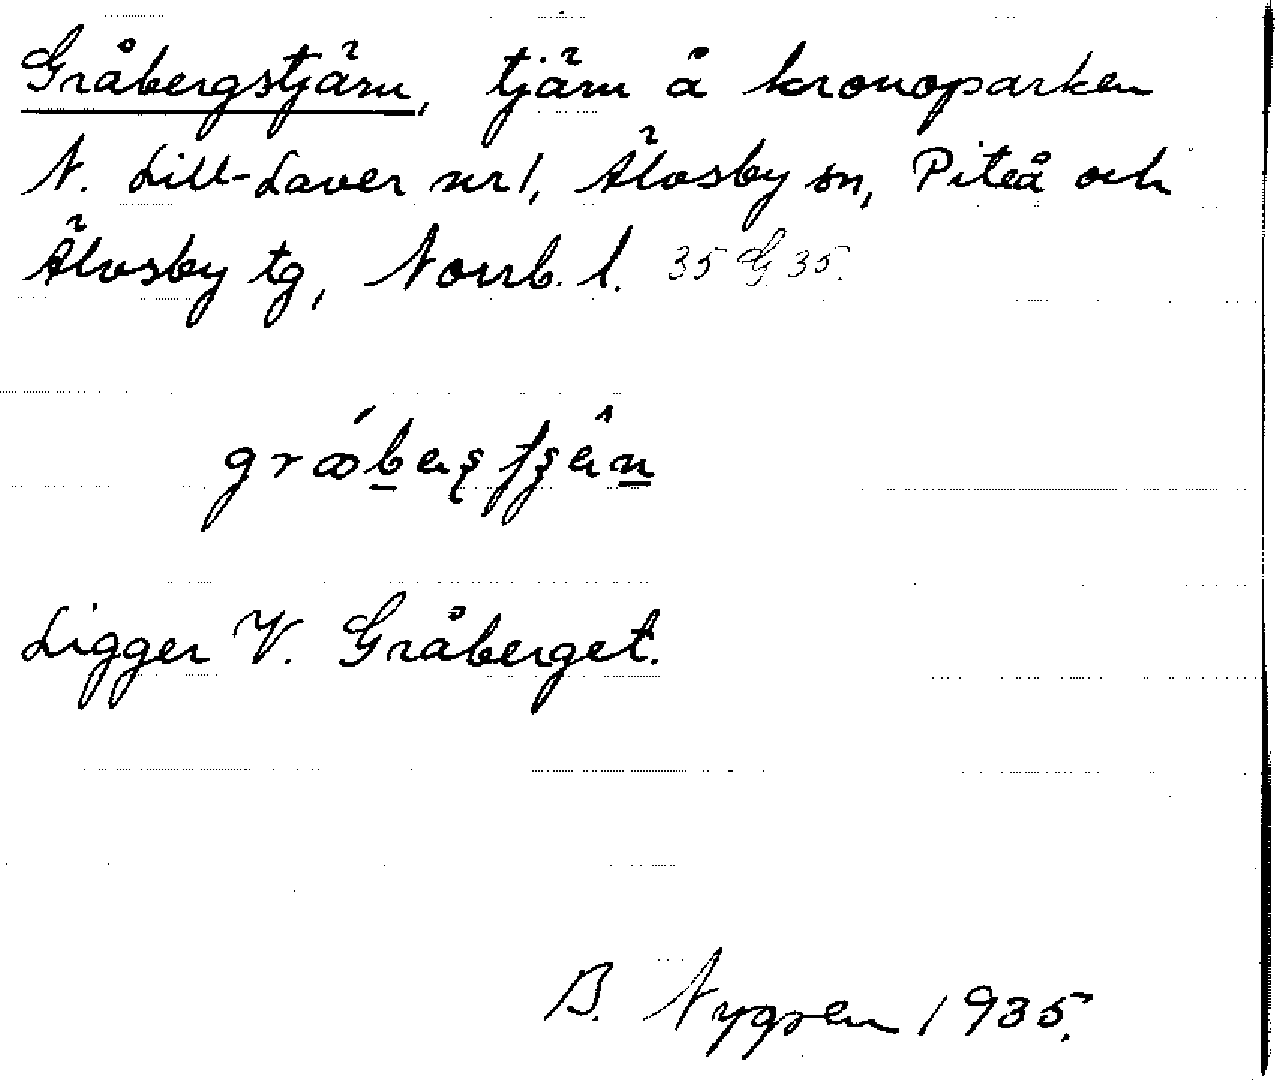 Gråbergstjärn, tjärn å kronoparken
N. Lill-Laver nr 1, Älvsby sn, Piteå och
Älvsby tg, Norrb. l. 35 G 35.
Ligger V. Gråberget.
B. Nygren 1935.